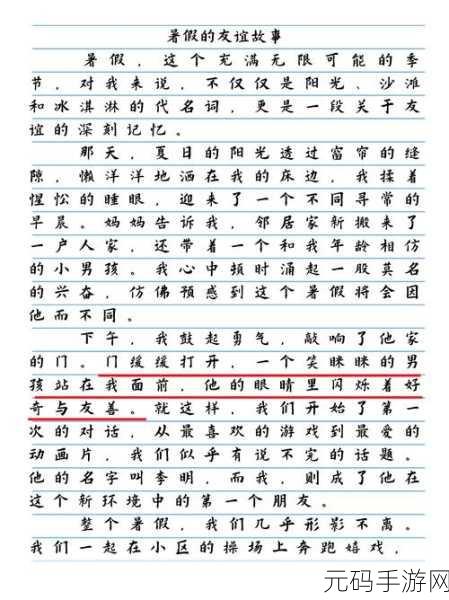 暑假的友谊故事
暑假，这个充满无限可能的季
节，对我来说，不仅仅是阳光、沙滩
和冰淇淋的代名词，更是一段关于友
谊的深刻记忆。
那天，夏日的阳光透过窗帘的缝
隙，懒洋洋地洒在我的床边，我揉着
惺忪的睡眼，迎来了一个不同寻常的
早晨。妈妈告诉我，邻居家新搬来了
一户人家，还带着一个和我年龄相仿
的小男孩。我心中顿时涌起一股莫名
的兴奋，仿佛预感到这个暑假将会因
他而不同。
下午，我鼓起勇气，敲响了他家
的门。门缓缓打开，一个笑眯眯的男
孩站在我面前，他的眼睛里闪烁着好
奇与友善。就这样，我们开始了第一
次的对话，从最喜欢的游戏到最爱的
动画片，我们似乎有说不完的话题。
他的名字叫李明，而我，则成了他在
这个新环境中的第一个朋友。
整个暑假，我们几乎形影不离。
我们一起在小区的操场上奔跑嬉戏，
元码手游网